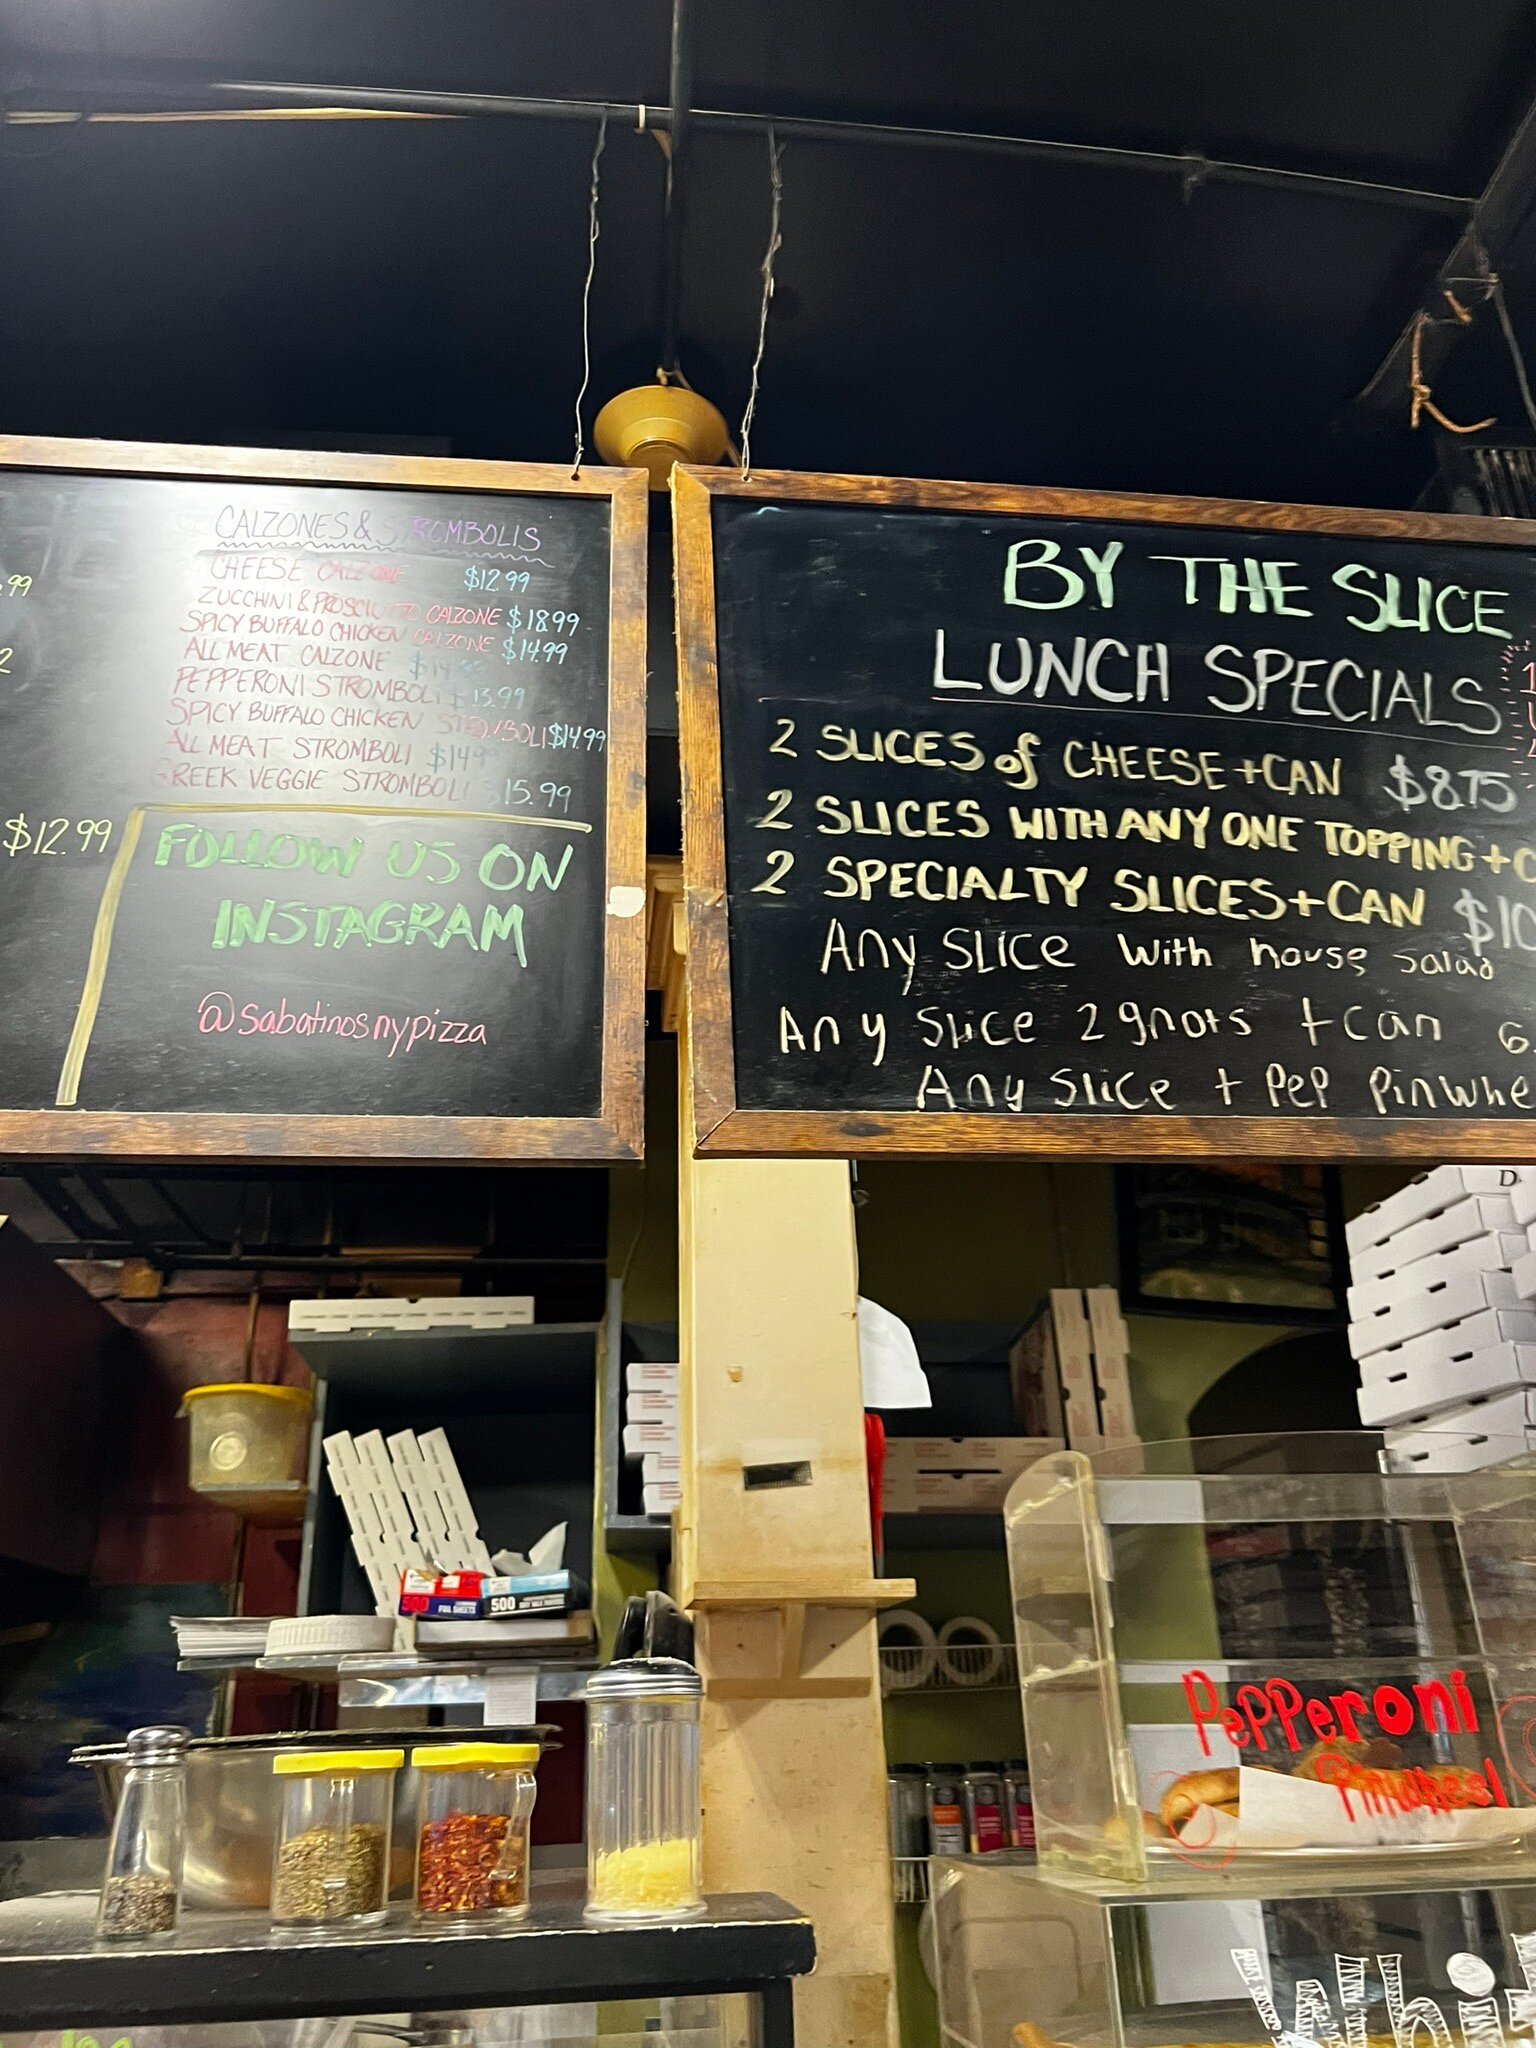 .99
2
$12.99
CALZONES & STROMBOLIS
CHEESE CALZONE $12.99
ZUCCHINI & PROSCIUTTO CALZONE $18.99
SPICY BUFFALO CHICKEN CALZONE $14.99
ALL MEAT CALZONE $14.99
PEPPERONI STROMBOLI $13.99
SPICY BUFFALO CHICKEN STROMBOLI $14.99
ALL MEAT STROMBOLI $14.99
GREEK VEGGIE STROMBOLI $15.99
FOLLOW US ON
INSTAGRAM
@sabatinosnypizza
BY THE SLICE
LUNCH SPECIALS
2 SLICES of CHEESE + CAN $8.75
2 SLICES WITH ANY ONE TOPPING + C
2 SPECIALTY SLICES + CAN $10
Any SLICE With house salad
Any Slice 2 gnots + can 6.
Any Slice + Pep Pinwhe
500 FOIL SHEETS
500
Pepperoni
Pinwheel